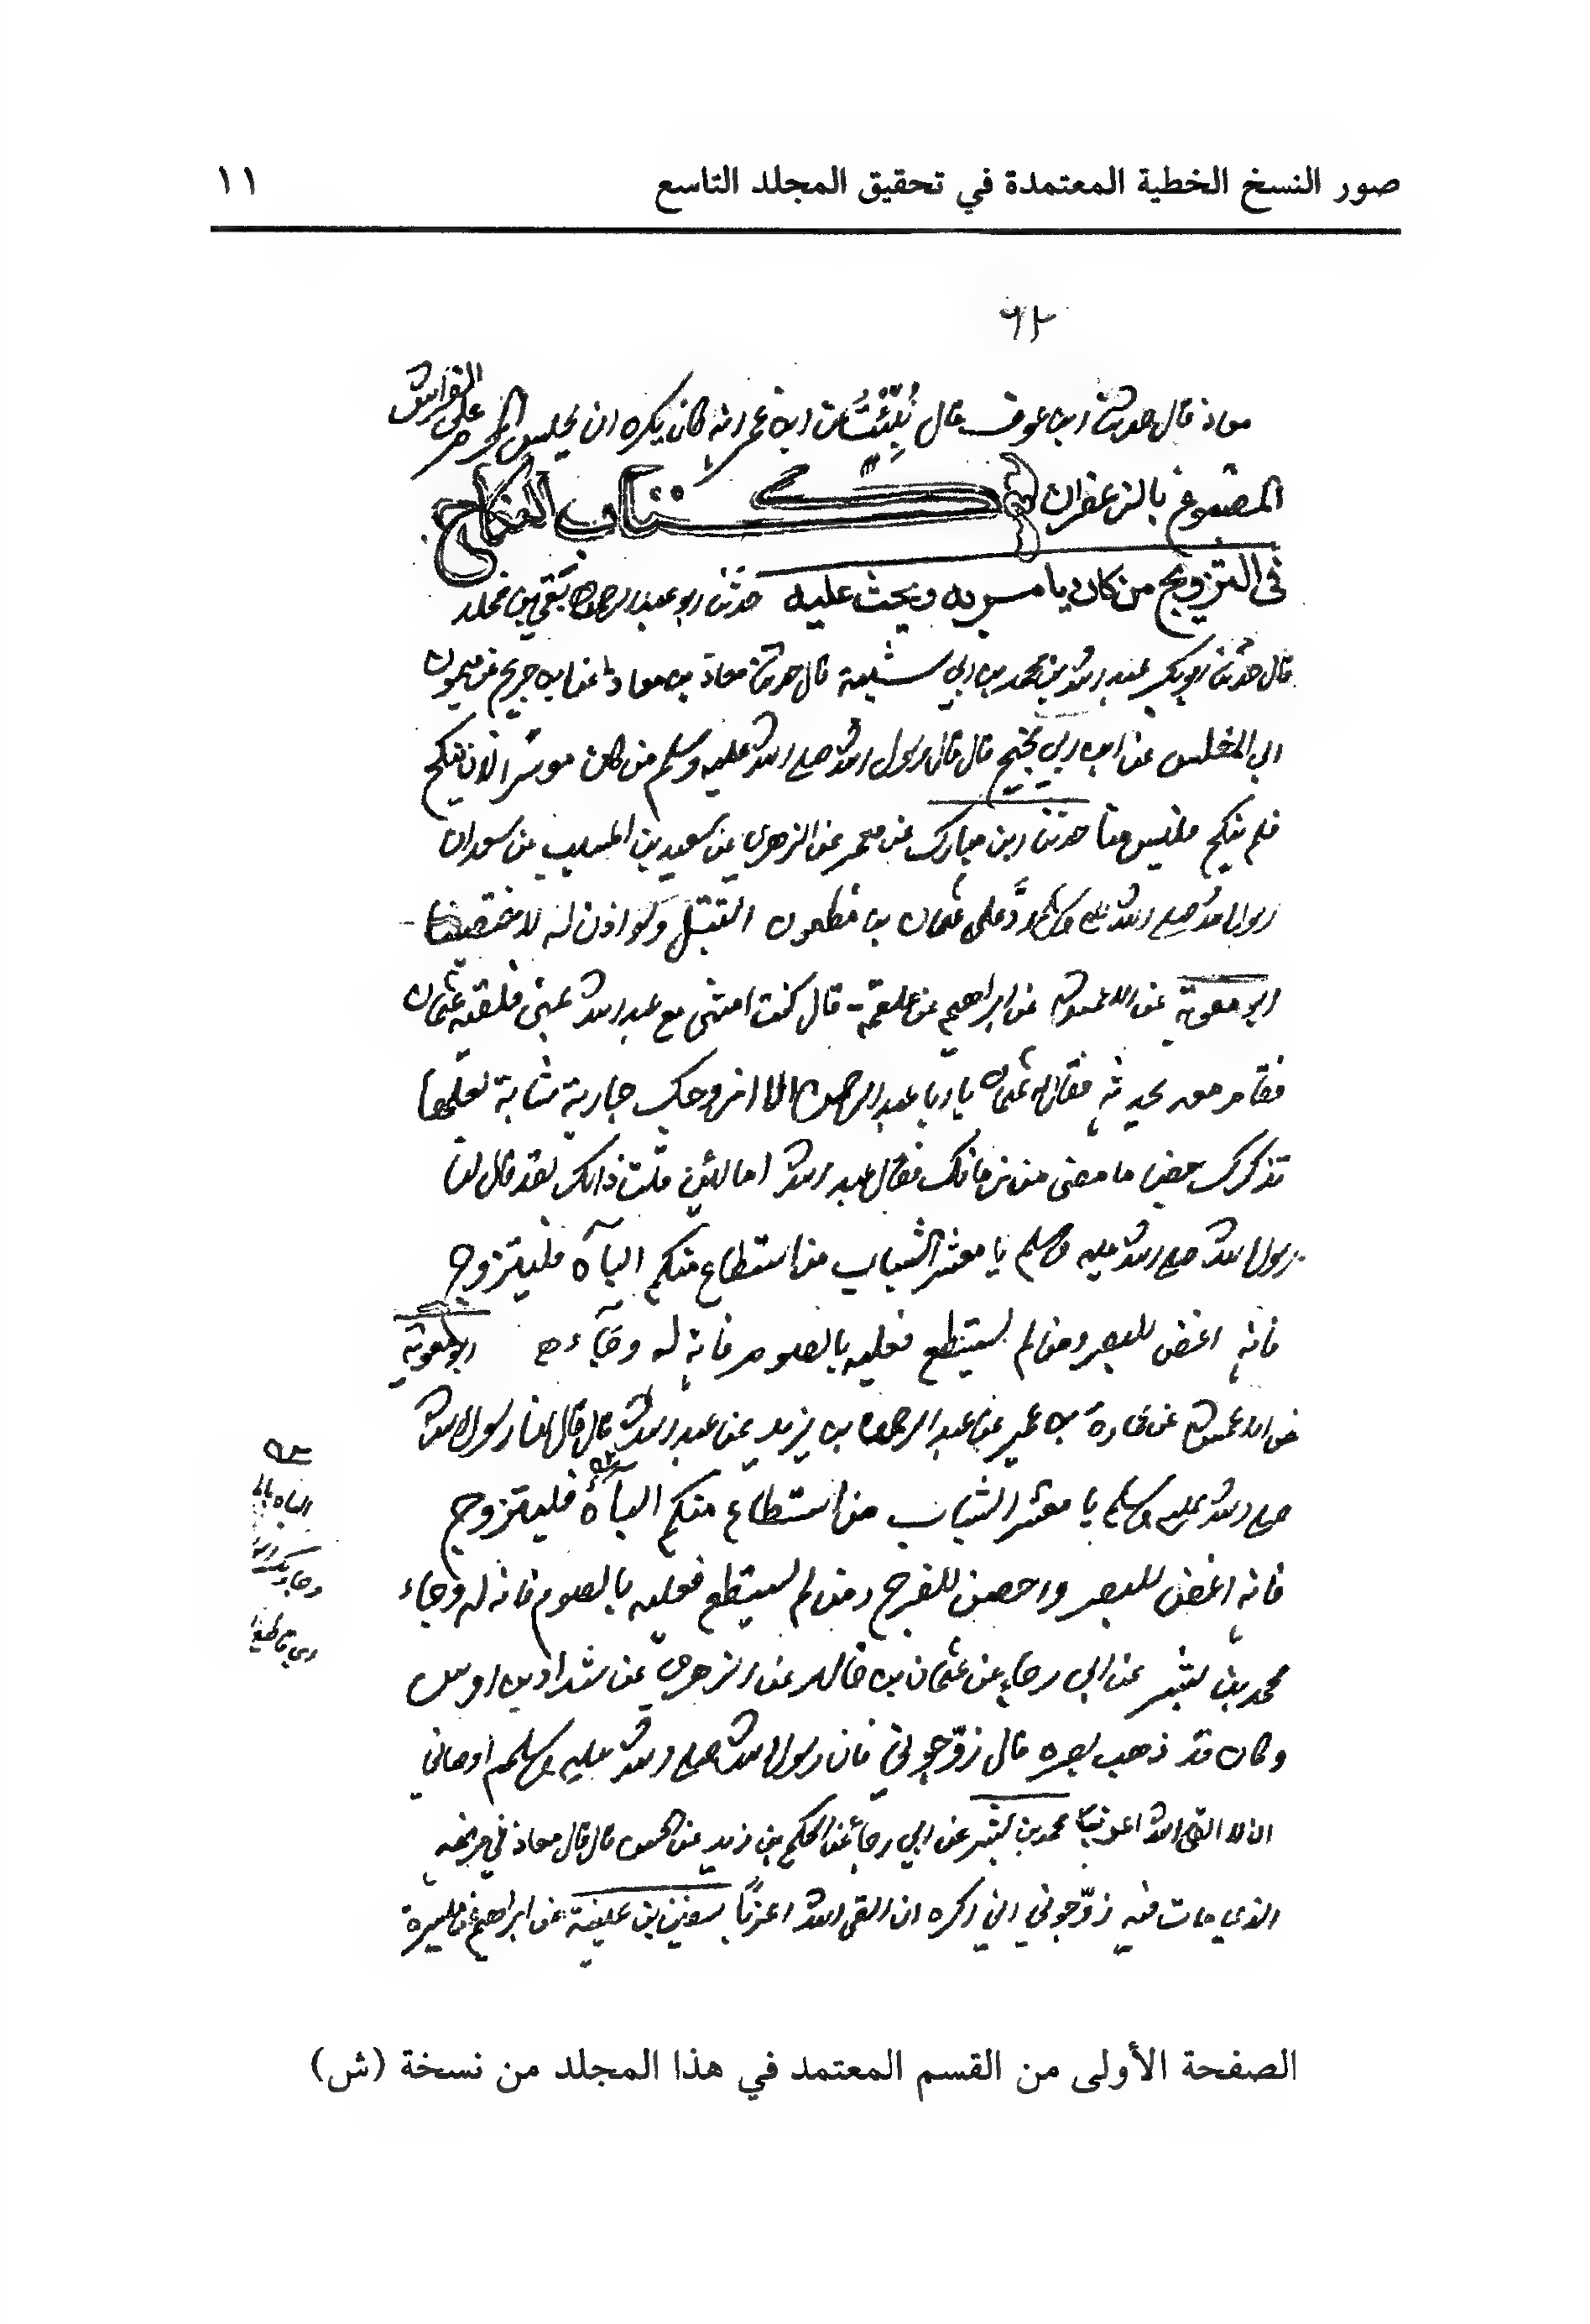 صور النسخ الخطية المعتمدة في تحقيق المجلد التاسع ١١
معاذ قال حدثنا ابن عوف قال نُبِّئْتُ عن ابن عمر انه كان يكره ان يجلس المحرم على الفراش
المصبوغ بالزعفران كتاب النكاح
في التزويج من كان يامر به ويحث عليه حدثنا ابو عبد الرحمن بقي بن مخلد
قال حدثنا ابو بكر عبد الله بن محمد بن ابي شيبة قال حدثنا معاذ بن معاذ عن ابن جريج عن ميمون
ابي المغلس عن ابن ابي نجيح قال قال رسول الله صلى الله عليه وسلم من كان موسرا لان ينكح
فلم ينكح فليس منا حدثنا ابن مبارك عن معمر عن الزهري عن سعيد بن المسيب عن سعد ان
رسول الله صلى الله عليه وسلم ردّ على عثمان بن مظعون التبتل ولو اذن له لاختصينا
ابو معوية عن الاعمش عن ابراهيم عن علقمة قال كنت امشى مع عبد الله بمنى فلقيه عثمان
فقام معه يحدثه فقال له عثمان يا ابا عبد الرحمن الا ازوجك جارية شابة لعلها
تذكرك بعض ما مضى من زمانك فقال عبد الله اما لئن قلت ذالك لقد قال لنا
رسول الله صلى الله عليه وسلم يا معشر الشباب من استطاع منكم البآة فليتزوج
فانه اغض للبصر ومن لم يستطع فعليه بالصوم فانه له وجآء ابو معوية
عن الاعمش عن عمارة بن عمير عن عبد الرحمن بن يزيد عن عبد الله قال قال لنا رسول الله
صلى الله عليه وسلم يا معشر الشباب من استطاع منكم البآة فليتزوج
فانه اغض للبصر واحصن للفرج ومن لم يستطع فعليه بالصوم فانه له وجاء
محمد بن بشر عن ابي رجاء عن عثمان بن خالد عن الزهري عن شداد بن اوس
وكان قد ذهب بصره قال زوّجوني فان رسول الله صلى الله عليه وسلم اوصاني
ان لا القى الله اعزبا محمد بن بشر عن ابي رجاء عن الحكم بن زيد عن الحسن قال قال معاذ في مرضه
الذي مات فيه زوّجوني اني اكره ان القى الله اعزبًا سفين بن عيينة عن ابراهيم بن ميسرة
الصفحة الأولى من القسم المعتمد في هذا المجلد من نسخة (ش)